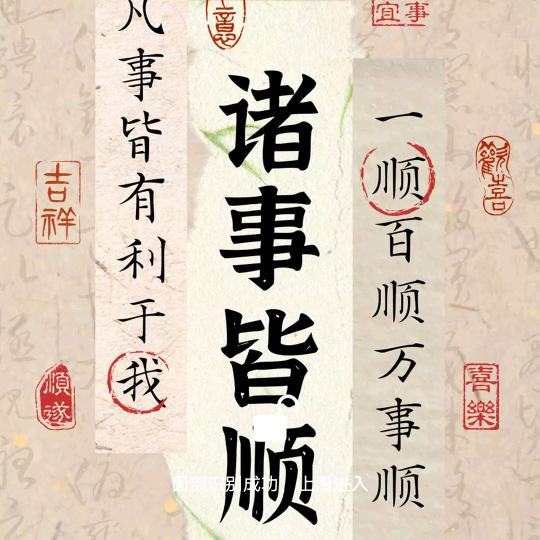 诸事皆顺
一顺百顺万事顺
凡事皆有利于我
吉祥
順遂
歡喜
喜樂
宜事
面部识别成功 上滑进入